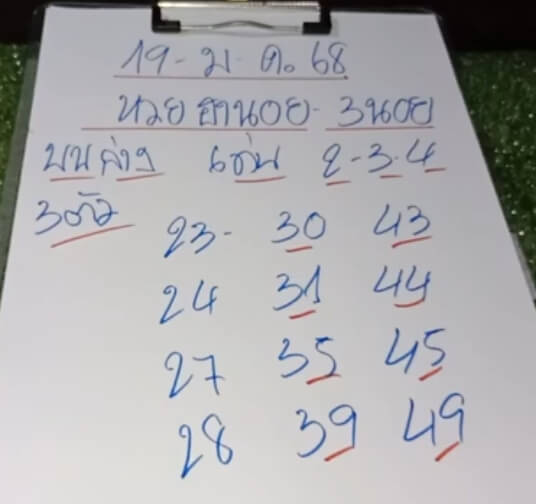 19 - ม. ค. 68
หวยฮานอย - 3 หนอย
บนล่าง เช่น 2-3-4
3 ตัว
23- 30 43
24 31 44
27 35 45
28 39 49